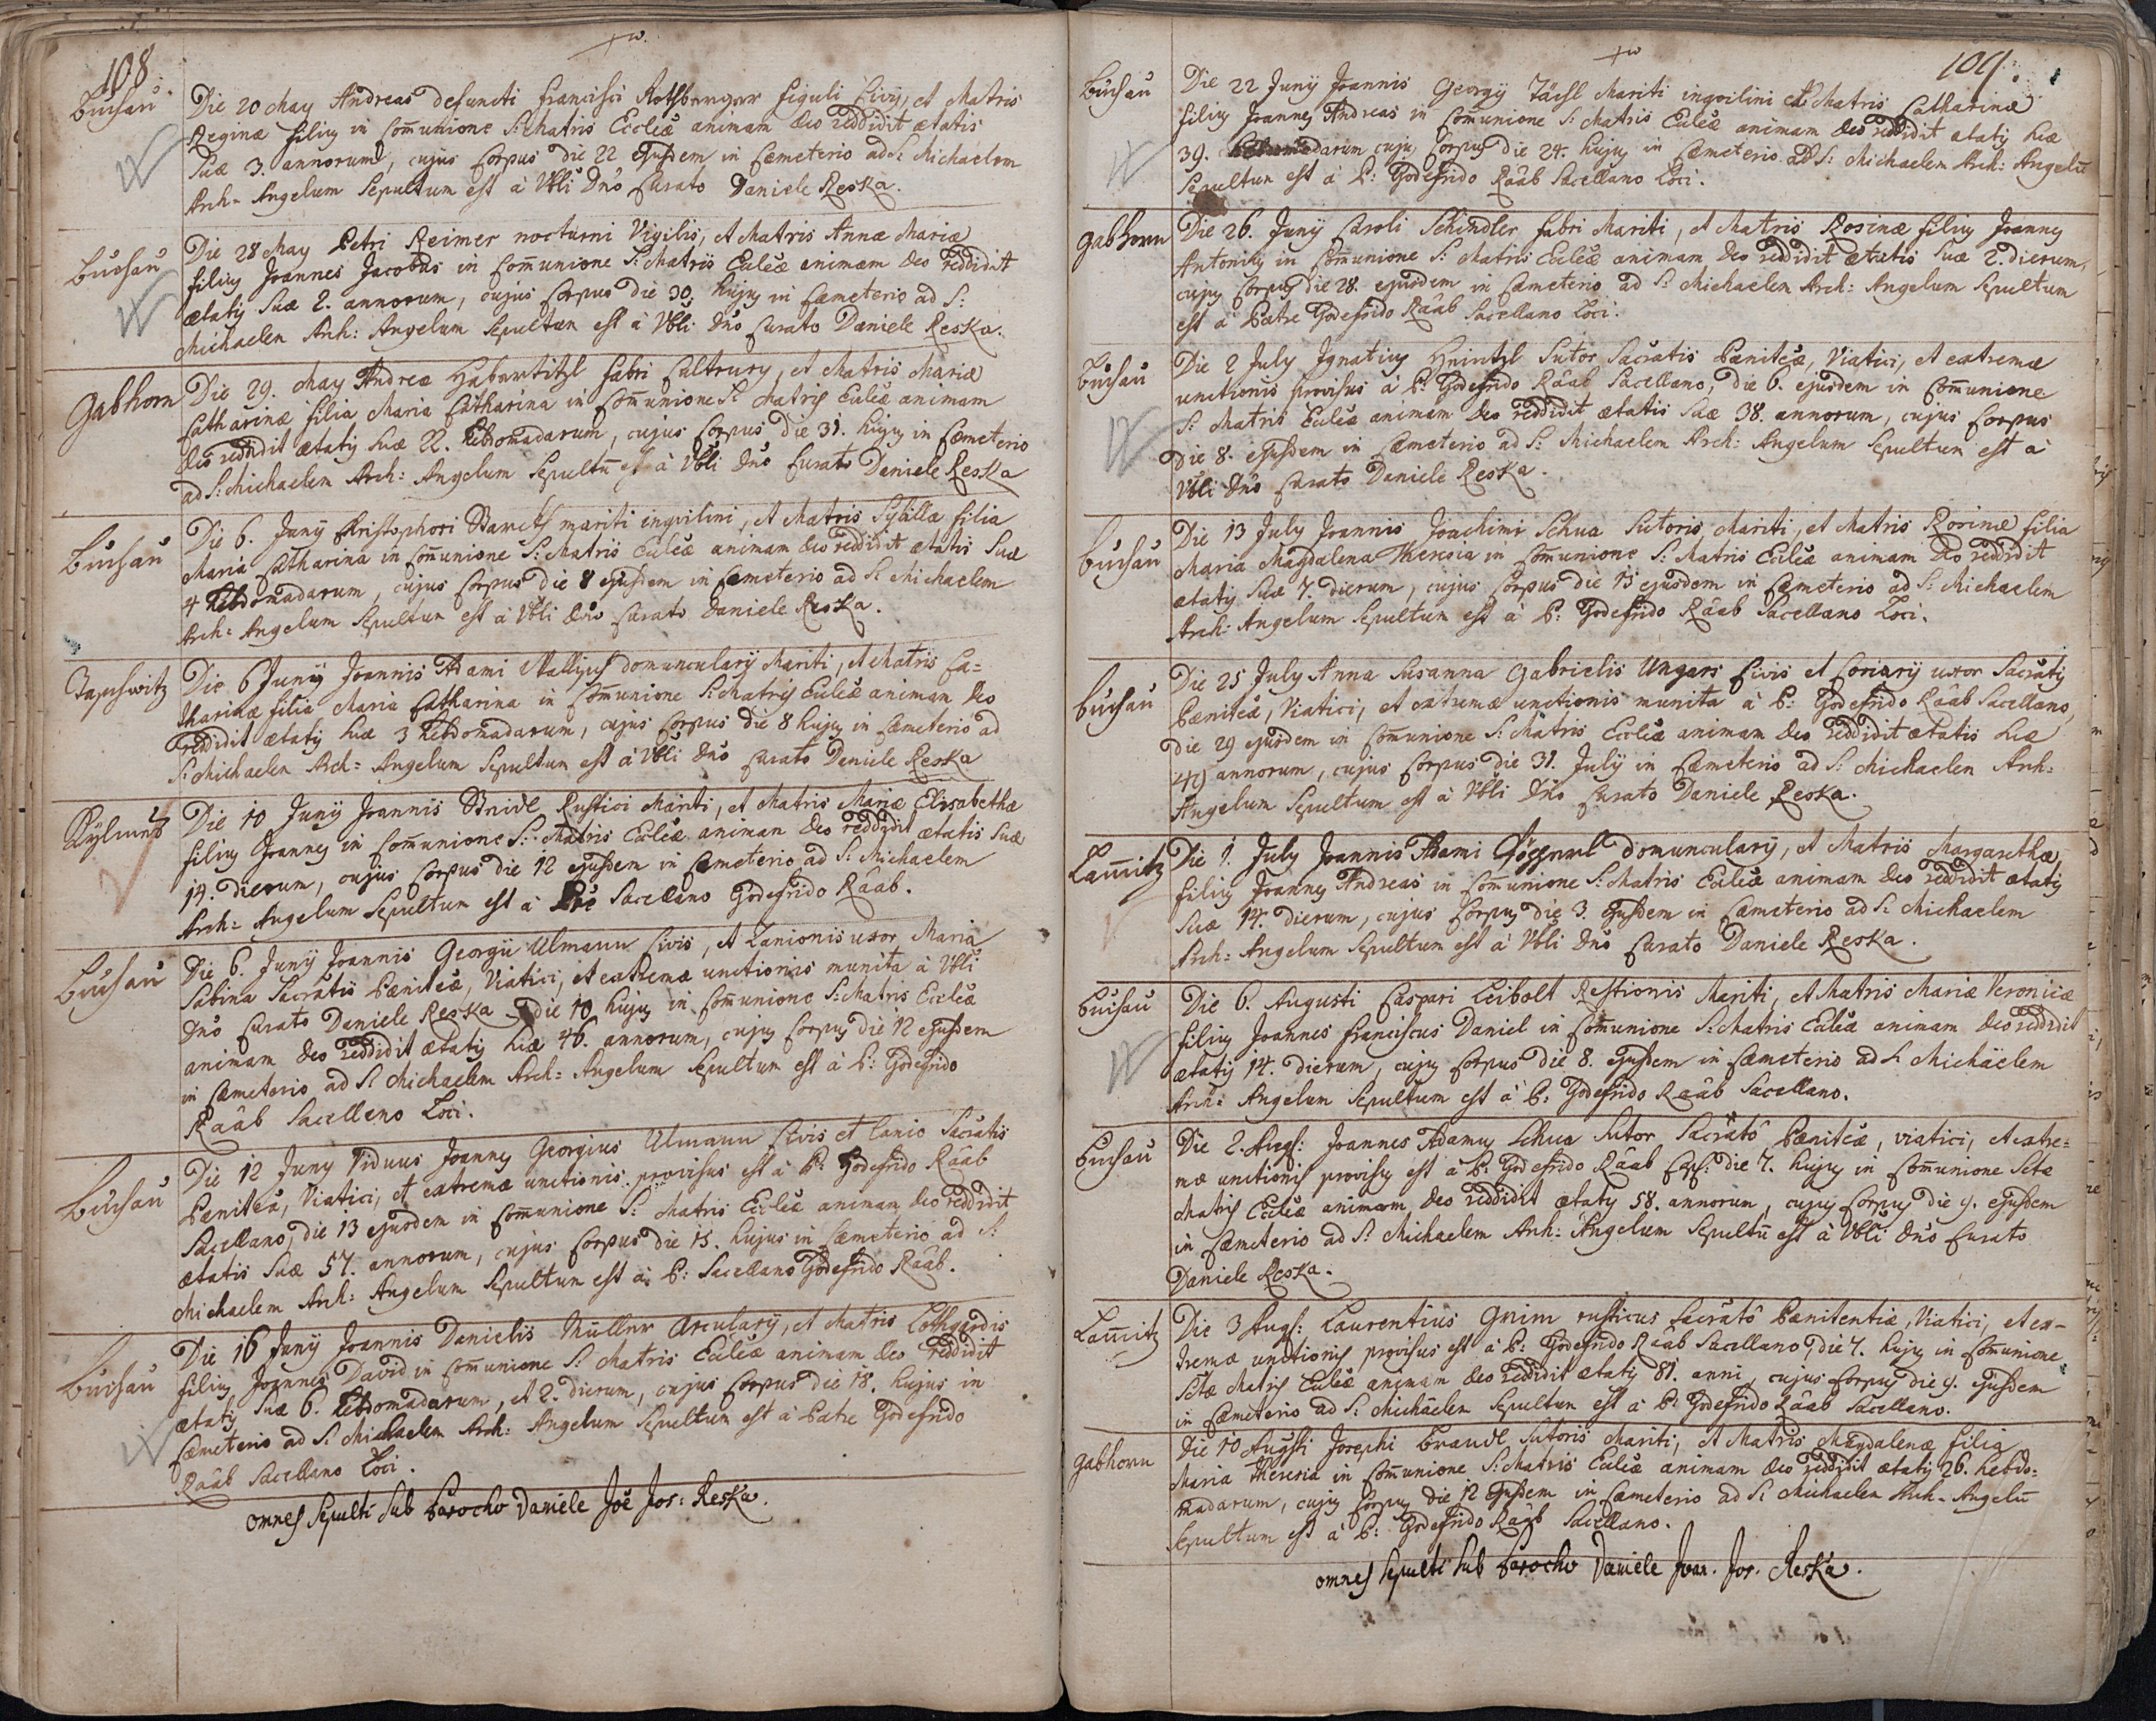 108.
Buchau
Die 20 May Andreas defuncti Francisci Rothberger figuli Civis, et Matris
Reginæ filius in Com̄unione S: Matris Eccleæ animam deo reddidit ætatis
suæ 3. annorum, cujus Corpus die 22 ejusdem in Cæmeterio ad S: Michaelem
Arch- Angelum Sepultum est à Vbli Dnō Curato Daniele Reska.
Buchau
Die 28 May Petri Reimer nocturni Vigilis, et Matris Annæ Mariæ
filius Joannes Jacobus in Com̄unione S: Matris Eccleæ animam deo reddidit
ætatis suæ 2. annorum, cujus Corpus die 30. hujus in Cæmeterio ad S:
Michaelem Arch: Angelum Sepultum est à Vbli Dnō Curato Daniele Reska.
Gabhorn
Die 29. May Andreæ Habertitzl fabri , et Matris Mariæ
Catharinæ filia Maria Catharina in Com̄unione S: Matris Eccleæ animam
deo reddidit ætatis suæ 22. hebdomadarum, cujus Corpus die 31. hujus in Cæmeterio
ad S: Michaelem Arch: Angelum Sepultū est à Vbli Dnō Curato Daniele Reska
Buchau
Die 6. Junij Christophori mariti inqvilini, et Matris Sybillæ filia
Maria Catharina in Com̄unione S: Matris Eccleæ animam deo reddidit ætatis suæ
4 hebdomadarum, cujus Corpus die 8 ejusdem in Cæmeterio ad S: Michaelem
Arch: Angelum Sepultum est à Vbli Dnō Curato Daniele Reska.
Die 6 Junij Joannis Adami domuncularij Mariti, et Matris Ca=
tharinæ filia Maria Catharina in Com̄unione S: Matris Eccleæ animam deo
reddidit ætatis suæ 3 hebdomadarum, cujus Corpus die 8 hujus in Cæmeterio ad
S: Michaelem Arch: Angelum Sepultum est à Vbli Dnō Curato Daniele Reska
Die 10 Junij Joannis Rustici Mariti, et Matris Mariæ Elisabethæ
filius Joannes in Com̄unione S: Matris Eccleæ animam deo reddidit ætatis suæ
14. dierum, cujus Corpus die 12 ejusdem in Cæmeterio ad S: Michaelem
Arch: Angelum Sepultum est à Sacellano Godefrido Râab.
Buchau
Die 6. Junij Joannis Georgij Ulmann Civis, et Lanionis uxor Maria
Sabina Sacratis Pæniteæ, Viatici, et extremæ unctionis munita à Vbli
Dnō Curato Daniele Reska die 10 hujus in Com̄unione S: Matris Eccleæ
animam deo reddidit ætatis suæ 46. annorum, cujus Corpus die 12 ejusdem
in Cæmeterio ad S: Michaelem Arch: Angelum Sepultum est à P: Godefrido
Râab Sacellano Loci.
Buchau
Die 12 Juny Viduus Joannes Georgius Ulmann Civis et Lanio Sacratis
Pæniteæ, Viatici, et extremæ unctionis provisus est à P: Godefrido Râab
Sacellano, die 13 ejusdem in Com̄unione S: Matris Eccleæ animam deo reddidit
ætatis suæ 57. annorum, cujus Corpus die 15. hujus in Cæmeterio ad S:
Michaelem Arch: Angelum Sepultum est à P: Sacellano Godefrido Râab.
Buchau
Die 16 Junij Joannis Danielis Müllner Arcularij, et Matris
filius Joannes David in Com̄unione S: Matris Eccleæ animam deo reddidit
ætatis suæ 6. hebdomadarum, et 2. dierum, cujus Corpus die 18. hujus in
Cæmeterio ad S: Michaelem Arch: Angelum Sepultum est à Patre Godefrido
Râab Sacellano Loci.
omnes Sepulti Sub Parocho Daniele Joē Jos: Reska.
109.
Buchau
Die 22 Junij Joannis Georgij Mariti inqvilini et Matris Catharinæ
filius Joannes Andreas in Com̄unione S: Matris Eccleæ animam deo reddidit ætatis suæ
39. hebdomadarum cujus Corpus die 24. hujus in Cæmeterio ad S: Michaelem Arch: Angelū
Sepultum est à P: Godefrido Râab Sacellano Loci.
Gabhorn
Die 26. Junij Caroli Schindler fabri Mariti, et Matris Rosinæ filius Joannes
Antonius in Com̄unione S: Matris Eccleæ animam deo reddidit ætatis suæ 2. dierum,
cujus Corpus die 28. ejusdem in Cæmeterio ad S: Michaelem Arch: Angelum Sepultum
est à Patre Godefrido Râab Sacellano Loci.
Buchau
Die 2 July Ignatius Heintzl Sutor Sacratis Pæniteæ, Viatici, et extremæ
unctionis provisus à P: Godefrido Râab Sacellano, die 6. ejusdem in Com̄unione
S: Matris Eccleæ animam deo reddidit ætatis suæ 38. annorum, cujus Corpus
die 8. ejusdem in Cæmeterio ad S: Michaelem Arch: Angelum Sepultum est à
Vbli Dnō Curato Daniele Reska.
Buchau
Die 13 July Joannis Joachimi Schua Sutoris Mariti, et Matris Rosinæ filia
Maria Magdalena Theresia in Com̄unione S: Matris Eccleæ animam deo reddidit
ætatis suæ 7. dierum, cujus Corpus die 15 ejusdem in Cæmeterio ad S: Michaelem
Arch: Angelum Sepultum est à P: Godefrido Râab Sacellano Loci.
Buchau
Die 25 July Anna Susanna Gabrielis Ungers Civis et Coriarij uxor Sacratis
Pæniteæ, Viatici, et extremæ unctionis munita à P: Godefrido Râab Sacellano,
die 29 ejusdem in Com̄unione S: Matris Eccleæ animam deo reddidit ætatis suæ
49 annorum, cujus Corpus die 31. Julij in Cæmeterio ad S: Michaelem Arch:
Angelum Sepultum est à Vbli Dnō Curato Daniele Reska.
Lam̄itz
Die 1. July Joannis Adami domuncularij, et Matris Margarethæ
filius Joannes Andreas in Com̄unione S: Matris Eccleæ animam deo reddidit ætatis
suæ 14. dierum, cujus Corpus die 3. ejusdem in Cæmeterio ad S: Michaelem
Arch: Angelum Sepultum est à Vbli Dnō Curato Daniele Reska.
Buchau
Die 6. Augusti Caspari Leibolt Restionis Mariti, et Matris Mariæ Veronicæ
filius Joannes Franciscus Daniel in Com̄unione S: Matris Eccleæ animam deo reddidit
ætatis 14. dierum, cujus Corpus die 8. ejusdem in Cæmeterio ad S: Michäelem
Arch: Angelum Sepultum est à P: Godefrido Râab Sacellano.
Buchau
Die 2. Augs: Joannes Adamus Schua Sutor Pæniteæ, viatici, et extre=
mæ unctionis provisus est à P: Godefrido Râab die 7. hujus in Com̄unione Sctæ
Matris Eccleæ animam deo reddidit ætatis 58. annorum, cujus Corpus die 9. ejusdem
in Cæmeterio ad S: Michaelem Arch: Angelum Sepultū est à Vbli Dnō Curato
Daniele Reska.
Lam̄itz
Die 3 Augs: Laurentius Grim rusticus Pænitentiæ, Viatici, et ex-
tremæ unctionis provisus est à P: Godefrido Râab Sacellano, die 7. hujus in Com̄unione
Sctæ Matris Eccleæ animam deo reddidit ætatis 81. anni, cujus Corpus die 9. ejusdem
in Cæmeterio ad S: Michäelem Sepultum est à P: Godefrido Râab Sacellano.
Gabhorn
Die 10 Augsti Josephi Brandl Sutoris Mariti, et Matris Magdalenæ filia
Maria Theresia in Com̄unione S: Matris Eccleæ animam deo reddidit ætatis 26. hebdo=
madarum, cujus Corpus die 12 ejusdem in Cæmeterio ad S: Michaelem Arch- Angelū
Sepultum est à P: Godefrido Râab Sacellano.
omnes Sepulti Sub Parocho Daniele Joan. Jos. Reska.